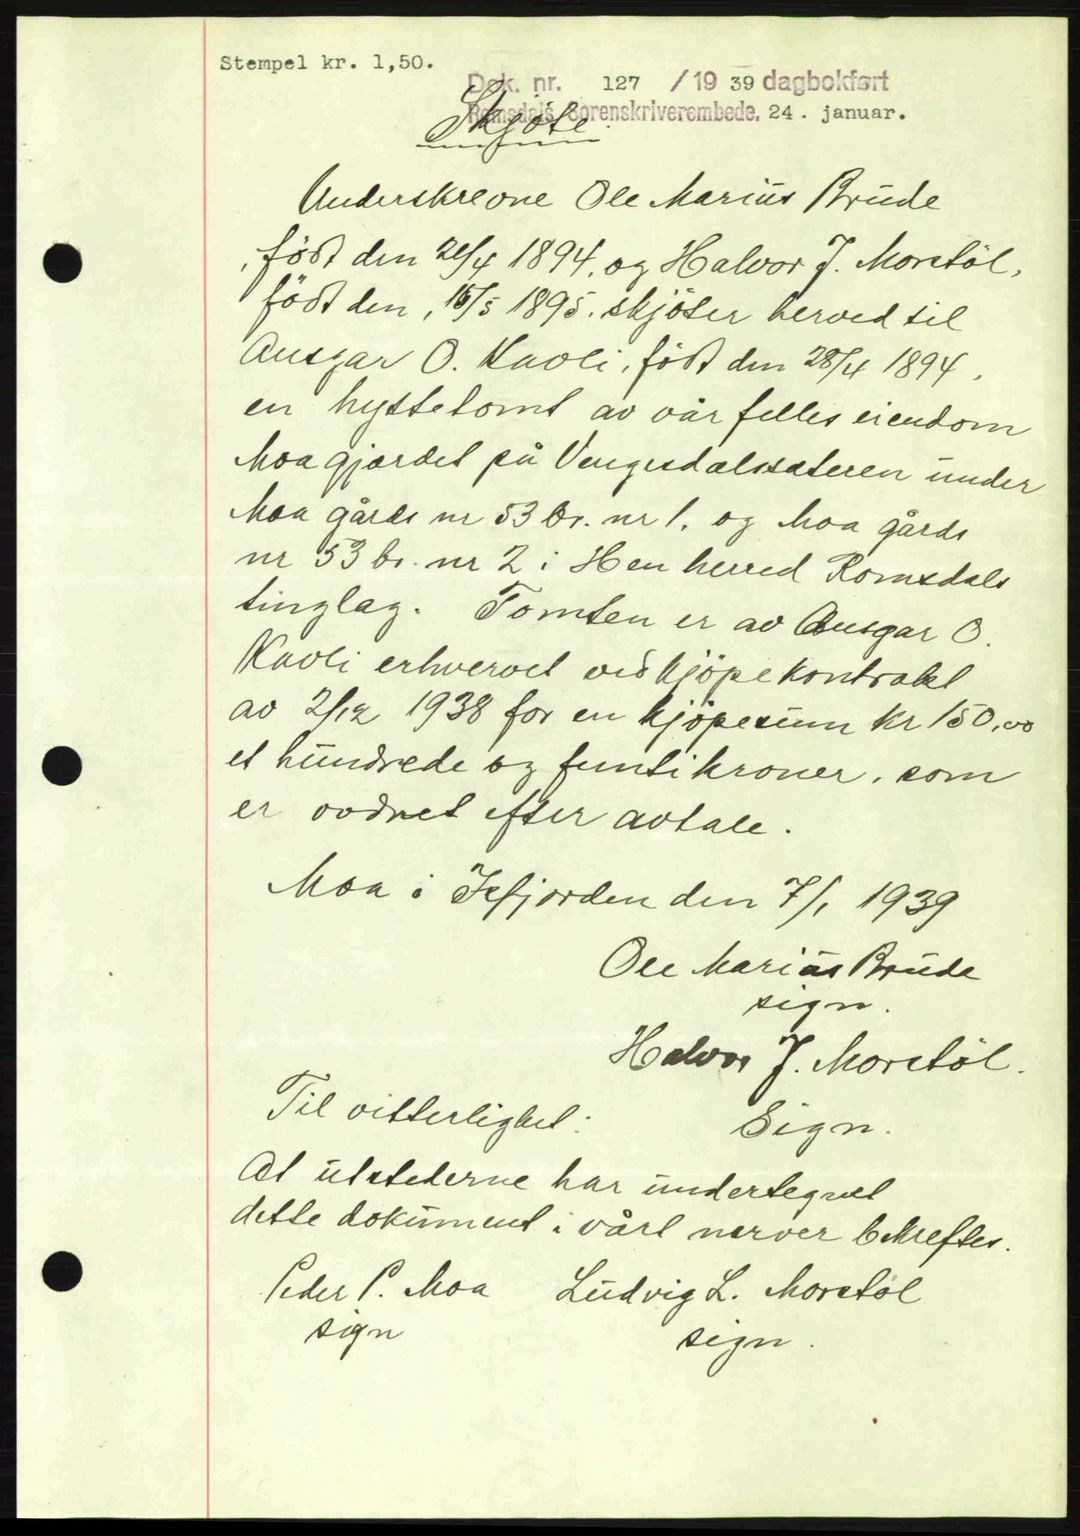 Stempel kr. 1,50.
Dok. nr. 127 / 19 39 dagbokført
Romsdals Sorenskriverembede, 24. januar.
Skjöte.
Underskrevne Ole Marius Brude
, föðt den /4 1894, og Halvor J. Morstöl,
föðt den, 15/5 1895. skjöter herved til
Ansgar O. Kavli, föðt den 28/4 1894,
en hyttetomt av vår felles eiendom
Moagjærdet på Vengedalssæteren under
Moa gårds nr 53 br. nr 1. og Moa gårds
nr 53 br. nr 2 i Hen herred Romsdals
tinglag. Tomten er av Ansgar O.
Kavli erhvervet við kjöpekontrakt
av 2/12 1938 for en kjöpesum kr 150,00
et hundrede og femti kroner, som
er ordnet efter avtale.
Moa i Isfjorden den 7/1 1939
Ole Marius Brude
sign.
Halvor J. Morstöl.
Til vitterlighet: Sign.
At utstederne har undertegnet
dette dokument i vårt nærver bekreftes.
Peder P. Moa Ludvig L. Morstöl
sign sign.